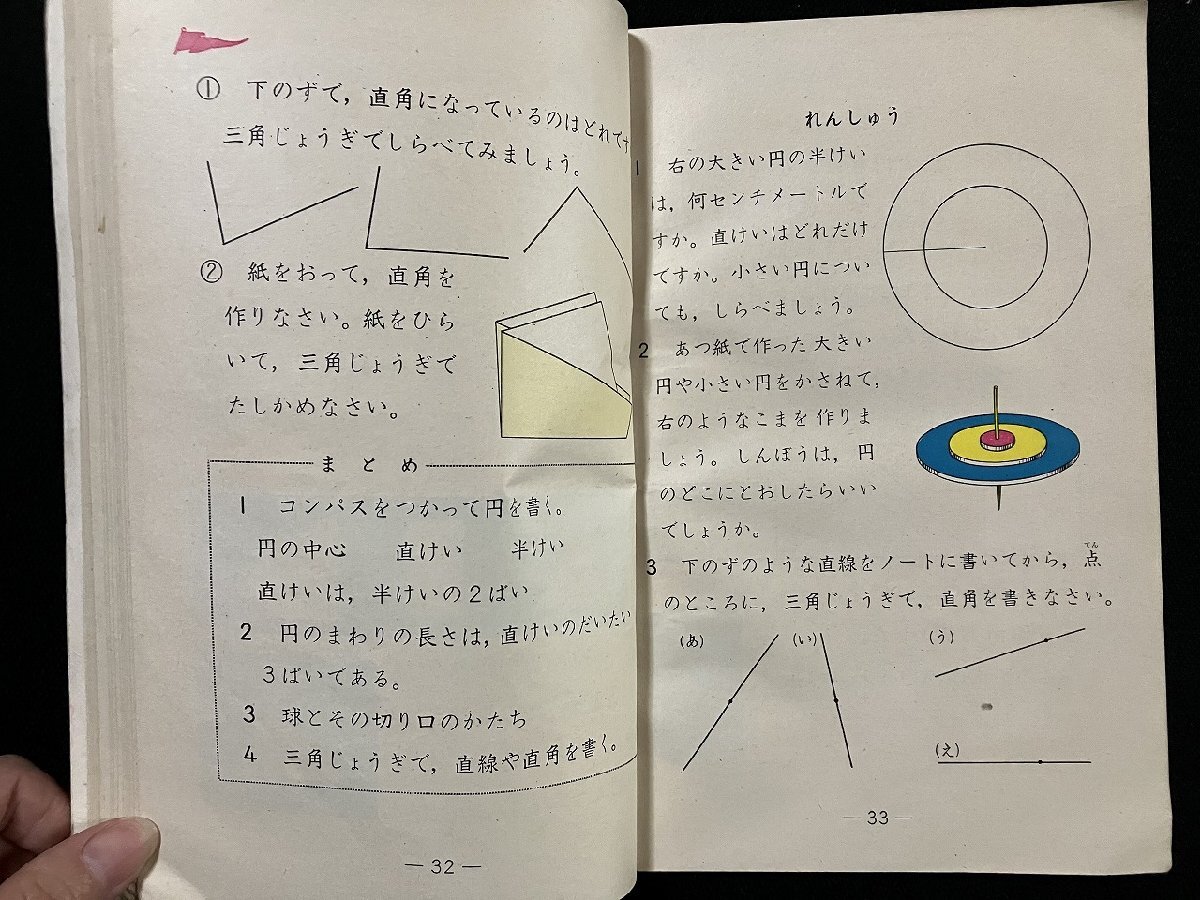 ① 下のずで，直角になっているのはどれです
三角じょうぎでしらべてみましょう。
② 紙をおって，直角を
作りなさい。紙をひら
いて，三角じょうぎで
たしかめなさい。
まとめ
1 コンパスをつかって円を書く。
円の中心 直けい 半けい
直けいは，半けいの2ばい
2 円のまわりの長さは，直けいのだいたい
3ばいである。
3 球とその切り口のかたち
4 三角じょうぎで，直線や直角を書く。
—32—
れんしゅう
1 右の大きい円の半けい
は，何センチメートルで
すか。直けいはどれだけ
ですか。小さい円につい
ても，しらべましょう。
2 あつ紙で作った大きい
円や小さい円をかさねて，
右のようなこまを作りま
しょう。しんぼうは，円
のどこにとおしたらいい
でしょうか。
3 下のずのような直線をノートに書いてから，点
てん
のところに，三角じょうぎで，直角を書きなさい。
(あ) (い) (う)
(え)
—33—